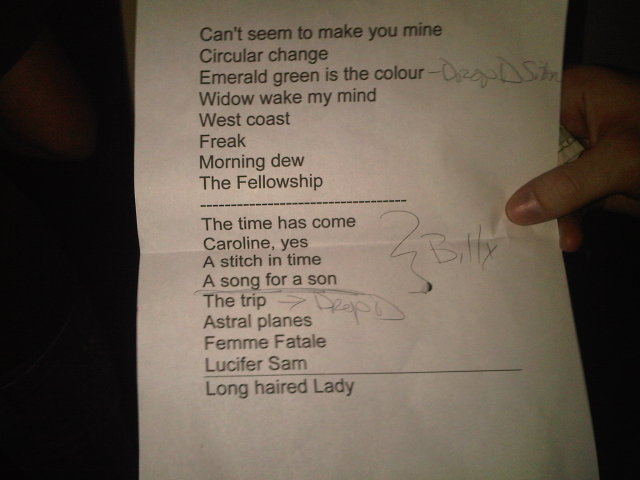 Can't seem to make you mine
Circular change
Emerald green is the colour - Drop D Sitar
Widow wake my mind
West coast
Freak
Morning dew
The Fellowship
------------------------------------
The time has come
Caroline, yes
A stitch in time
Billy
A song for a son
The trip → Drop D
Astral planes
Femme Fatale
Lucifer Sam
Long haired Lady